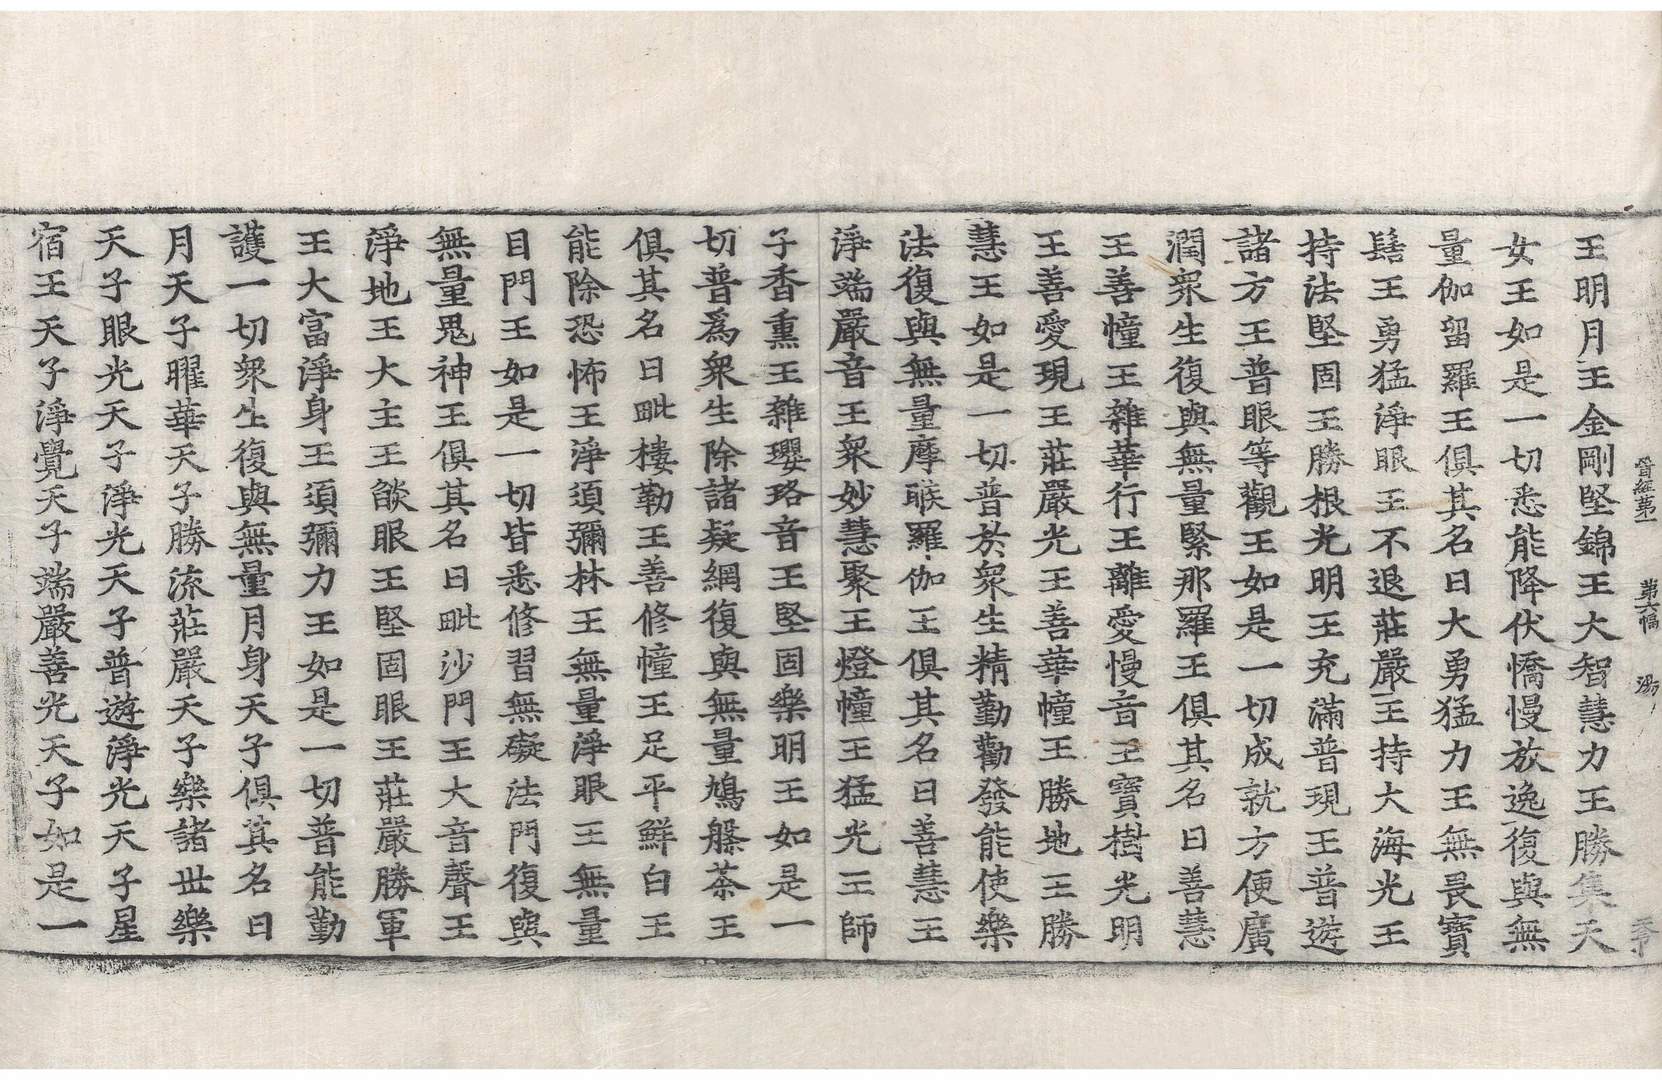 晉經第一 第六幅 湯
王明月王金剛堅錦王大智慧力王勝集天
女王如是一切悉能降伏憍慢放逸復與無
量伽留羅王俱其名曰大勇猛力王無畏寶
髻王勇猛淨眼王不退莊嚴王持大海光王
持法堅固王勝根光明王充滿普現王普遊
諸方王普眼等觀王如是一切成就方便廣
潤衆生復與無量緊那羅王俱其名曰善慧
王善幢王雜華行王離愛慢音王寶樹光明
王善愛現王莊嚴光王善華幢王勝地王勝
慧王如是一切普於衆生精勤勸發能使樂
法復與無量摩睺羅伽王俱其名曰善慧王
淨端嚴音王衆妙慧聚王燈幢王猛光王師
子香熏王雜瓔珞音王堅固樂明王如是一
切普爲衆生除諸疑網復與無量鳩槃茶王
俱其名曰毗樓勒王善修幢王足平鮮白王
能除恐怖王淨須彌林王無量淨眼王無量
日門王如是一切皆悉修習無礙法門復與
無量鬼神王俱其名曰毗沙門王大音聲王
淨地王大主王㷔眼王堅固眼王莊嚴勝軍
王大富淨身王須彌力王如是一切普能勤
護一切衆生復與無量月身天子俱其名曰
月天子曜華天子勝流莊嚴天子樂諸世樂
天子眼光天子淨光天子普遊淨光天子星
宿王天子淨覺天子端嚴善光天子如是一